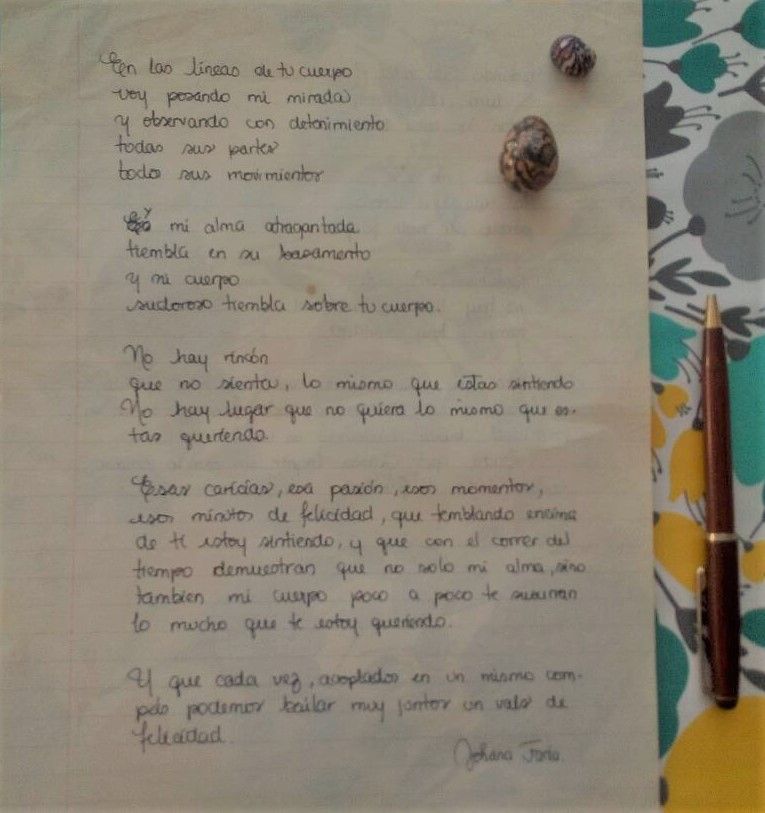 En las líneas de tu cuerpo
voy posando mi mirada
y observando con detenimiento
todas sus partes
todos sus movimientos
Y mi alma atragantada
tiembla en su basamento
y mi cuerpo
sudoroso tiembla sobre tu cuerpo.
No hay rincón
que no sienta, lo mismo que estas sintiendo
No hay lugar que no quiera lo mismo que es-
tas queriendo.
Esas caricias, esa pasión, esos momentos,
esos minutos de felicidad, que temblando encima
de ti estoy sintiendo, y que con el correr del
tiempo demuestran que no solo mi alma, sino
tambien mi cuerpo poco a poco te susurran
lo mucho que te estoy queriendo.
Y que cada vez, acoplados en un mismo com-
pás podemos bailar muy juntos un vals de
felicidad.
Johana